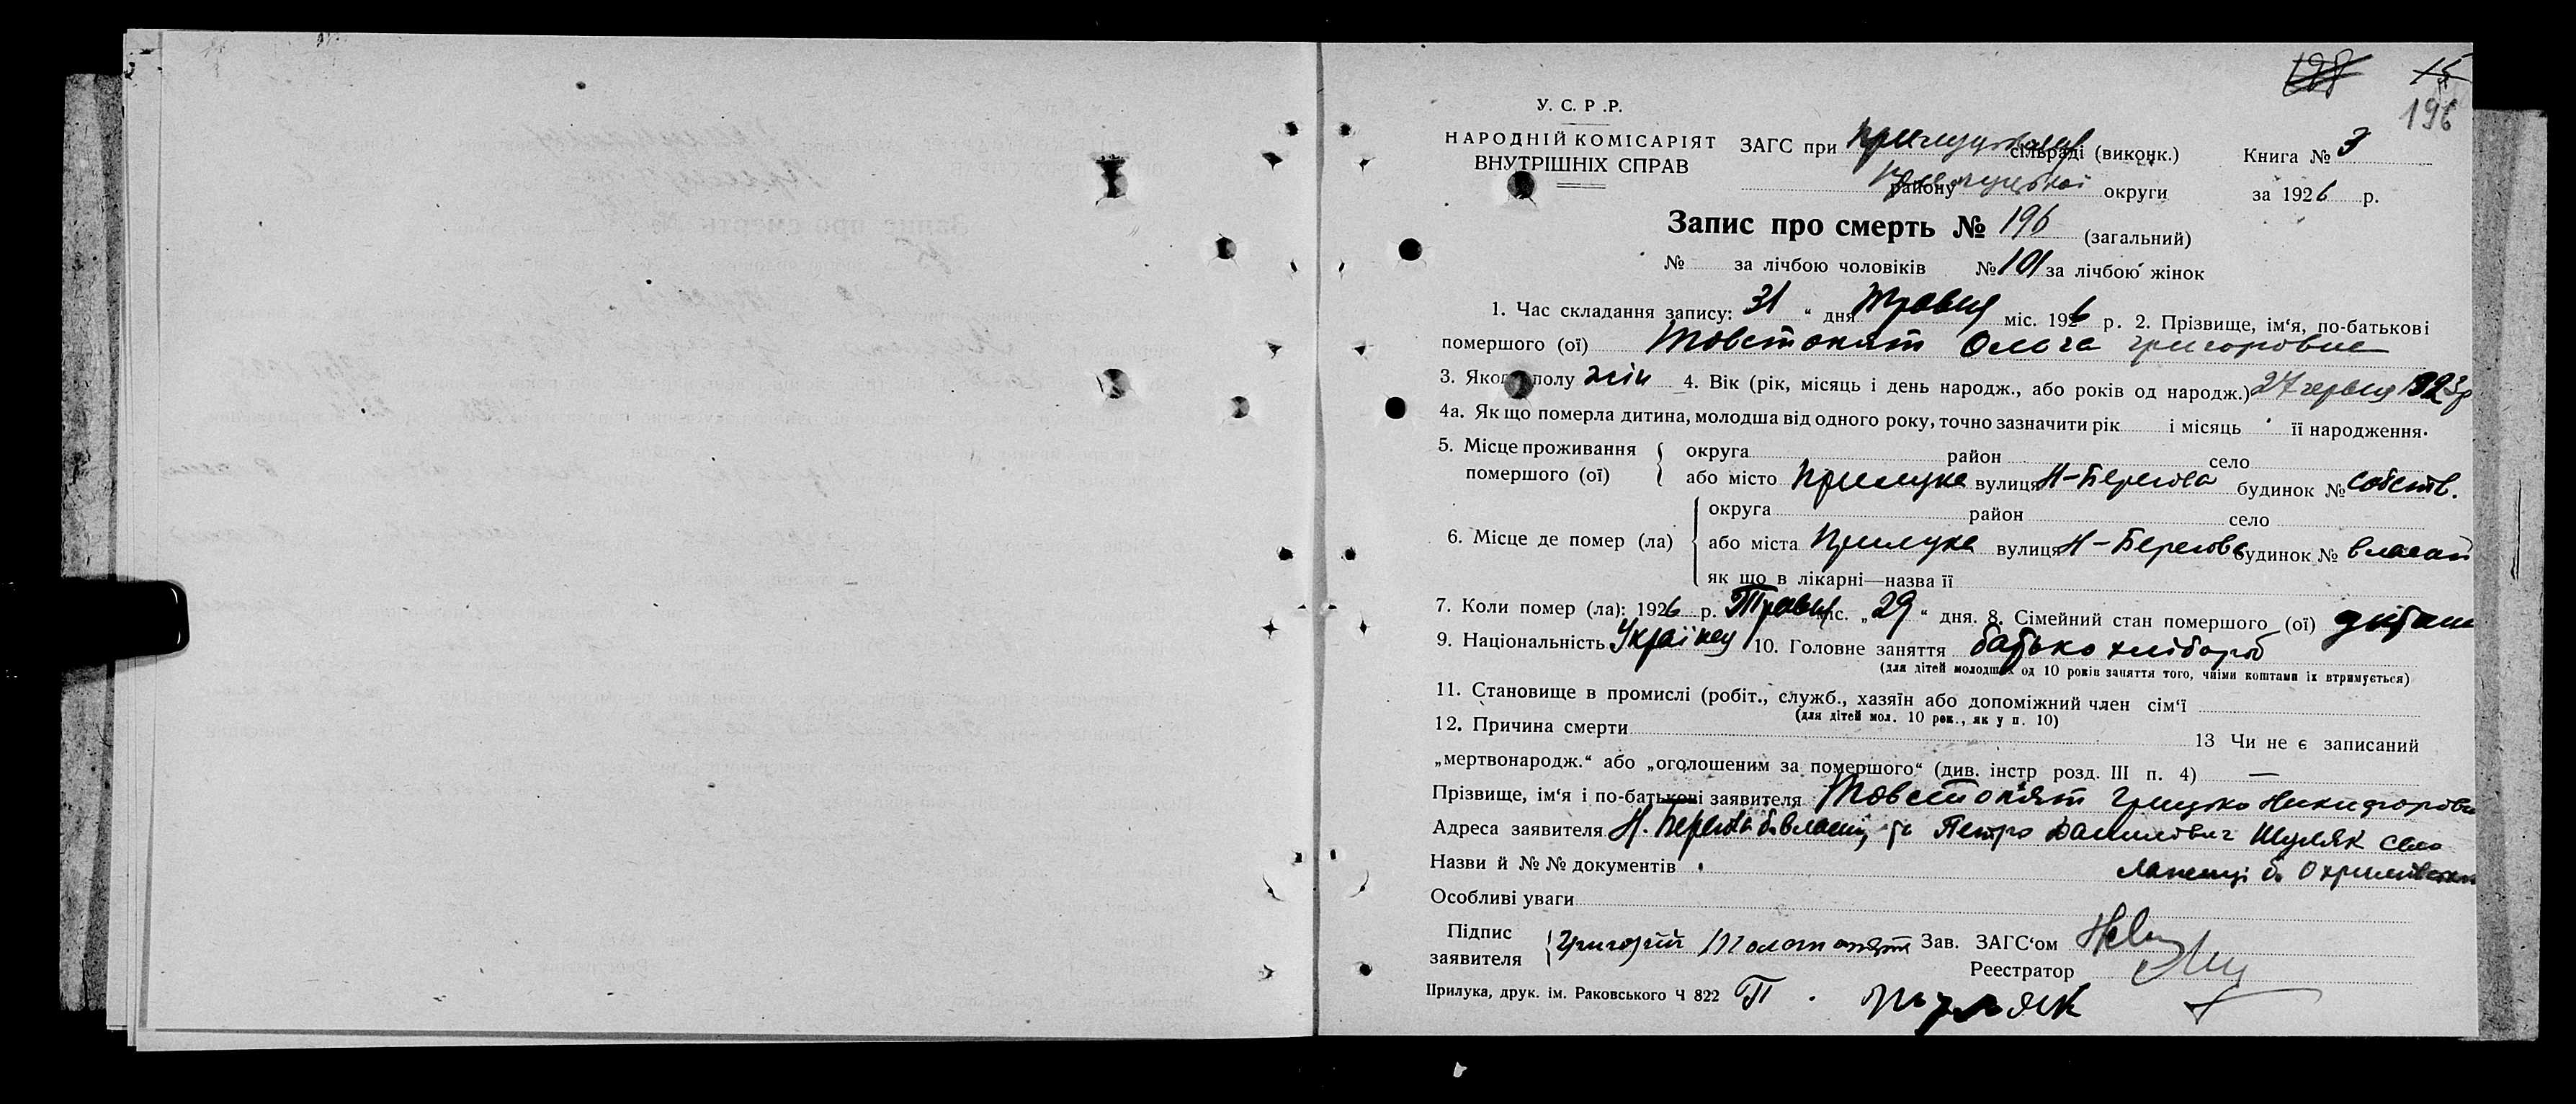 128 15
196
У. С. Р. Р.
НАРОДНІЙ КОМІСАРІЯТ
ВНУТРІШНІХ СПРАВ
ЗАГС при Прилуцькому сільраді (виконк.) Книга № 3
району Прилуцької округи за 1926 р.
Запис про смерть № 196 (загальний)
№ за лічбою чоловіків № 101 за лічбою жінок
1. Час складання запису: 31 " дня Травня міс. 1926 р. 2. Прізвище, ім'я, по-батькові
помершого (ої) Товстопят Ольга Григоровна
3. Якого полу жін 4. Вік (рік, місяць і день народж., або років од народж.) 27 червня 1923 р
4а. Як що померла дитина, молодша від одного року, точно зазначити рік і місяць її народження.
5. Місце проживання помершого (ої) { округа район село
або місто Прилука вулиця Н-Берегова будинок № собств.
6. Місце де помер (ла) { округа район село
або міста Прилука вулиця Н-Берегова будинок № власн
як що в лікарні—назва її
7. Коли помер (ла): 1926 р. Травня міс. „ 29 " дня. 8. Сімейний стан помершого (ої) дитина
9. Національність Українец 10. Головне заняття батько хлібороб
(для дітей молодших од 10 років заняття того, чиїми коштами їх втримується)
11. Становище в промислі (робіт., служб., хазяїн або допоміжний член сім'ї
(для дітей мол. 10 рок., як у п. 10)
12. Причина смерти 13 Чи не є записаний
„мертвонародж." або „оголошеним за помершого" (див. інстр розд. III п. 4) —
Прізвище, ім'я і по-батькові заявителя Товстопят Грицько Никифорови
Адреса заявителя Н. Берегова б. власній, та Петро Данилович Шуляк село
Назви й № № документів Лапенці б. Охримівськ
Особливі уваги
Підпис заявителя { Григорій Толстопят Зав. ЗАГС'ом
Реестратор
Прилука, друк. ім. Раковського Ч 822 П. Шуляк